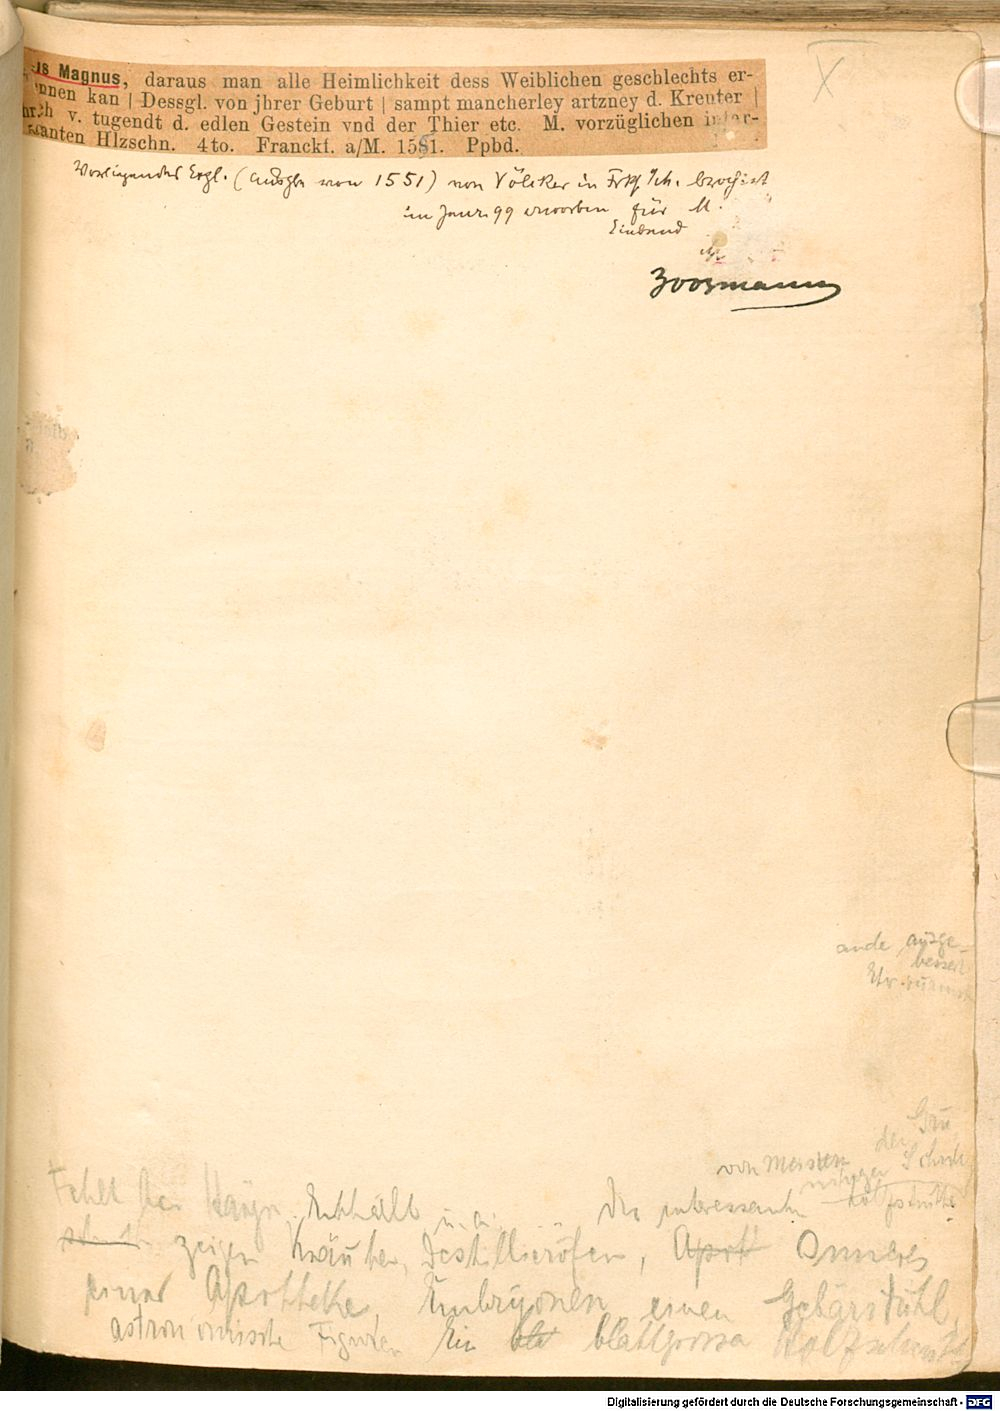 us Magnus, daraus man alle Heimlichkeit dess Weiblichen geschlechts er-
ennen kan | Dessgl. von jhrer Geburt | sampt mancherley artzney d. Kreuter |
v. tugendt d. edlen Gestein vnd der Thier etc. M. vorzüglichen inter-
ssanten Hlzschn. 4to. Franckf. a/M. 1551. Ppbd.
Vorliegendes Expl. (Ausgbe von 1551) von Völcker in
im Janr. 99 erworben für M.
Einband
Zoozmann
ande ausge-
bessert
von Meister
der
Fehlt bei Hayn. Enthält u. a. Die interessanten
zeigen Kräuter, Destillieröfen, Apoth Inneres
einer Apotheke, Embryonen einen Gebärstuhl,
astronomische Figuren Ein bla blattgrosser Holzschnitt
Digitalisierung gefördert durch die Deutsche Forschungsgemeinschaft - DFG